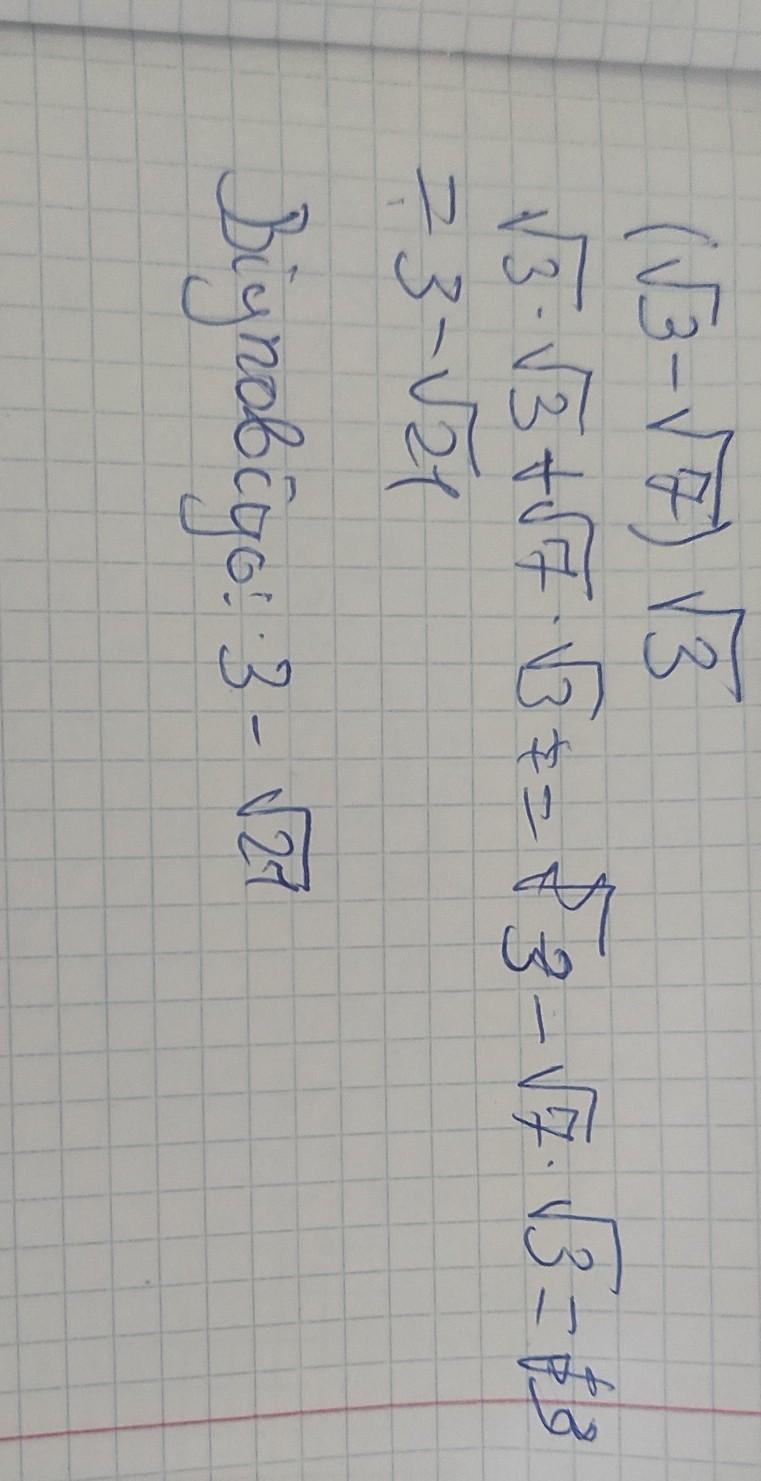 (√3-√7)√3
√3·√3+√7·√3 = 3-√7·√3 =
= 3-√21
Відповідь: 3-√21